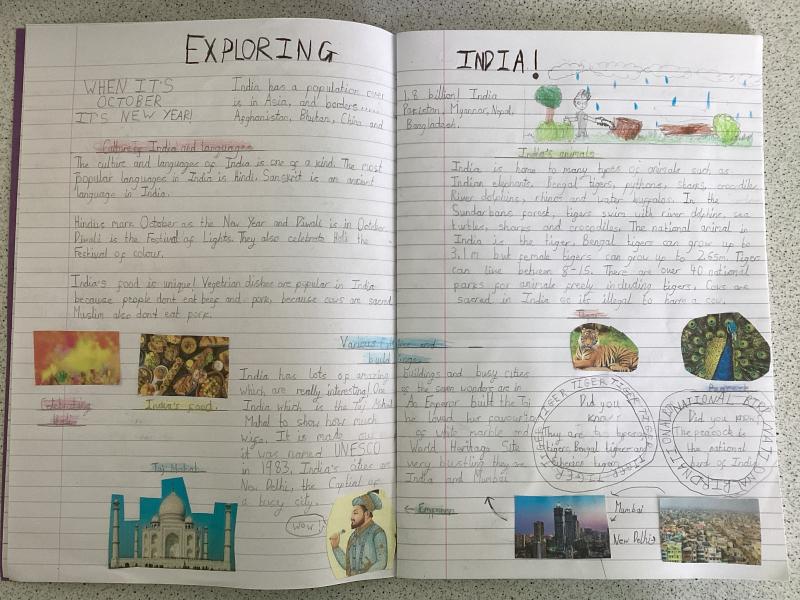 EXPLORING INDIA!
WHEN IT'S
OCTOBER
IT'S NEW YEAR!
India has a population over 1.8 billion! India
is in Asia, and borders Pakistan, Myanmar, Nepal,
Afghanistan, Bhutan, China and Bangladesh.
Culture of India and languages
The culture and languages of India is one of a kind. The most
popular languages in India is Hindi. Sanskrit is an ancient
language in India.
Hindiss mark October as the New Year and Diwali is in October.
Diwali is the Festival of Lights. They also celebrate Holi the
Festival of colour.
India's food is unique! Vegetrian dishes are popular in India
because people dont eat beef and pork, because cows are sacred
Muslim also dont eat pork.
India's food.
Various
and
buildings
India has lots of amazing Buildings and busy cities
which are really interesting! One of the seven wonders are in
India which is the Taj Mahal. An Emperor built the Taj
Mahal to show how much he loved his favourite
wife. It is made out of white marble and
it was named UNESCO World Heritage Site
in 1983. India's cities are very bustling they are
New Delhi, the Captial of India and Mumbai
a busy city.
Taj Mahal
WOW!
← Emperor
India's animals
India is home to many types of animals such as
Indian elephants, Bengal tigers, pythons, crocodiles,
River dolphins, rhinos and water buffalos. In the
Sundarbans forest, tigers swim with river dolphins, sea
turtles, sharks and crocodiles. The national animal in
India is the tiger. Bengal tigers can grow up to
3.1m but female tigers can grow up to 2.65m. Tigers
can live between 8-15. There are over 40 national
parks for animals freely including tigers. Cows are
sacred in India so it's illegal to harm a cow.
Peacock
TIGER TIGER TIGER TIGER
Did you
know?
They are two types of
tigers Bengal tigers and
Siberian tigers.
NATIONAL BIRD NATIONAL BIRD
Did you know?
The peacock is
the national
bird of India
Mumbai
New Delhi→